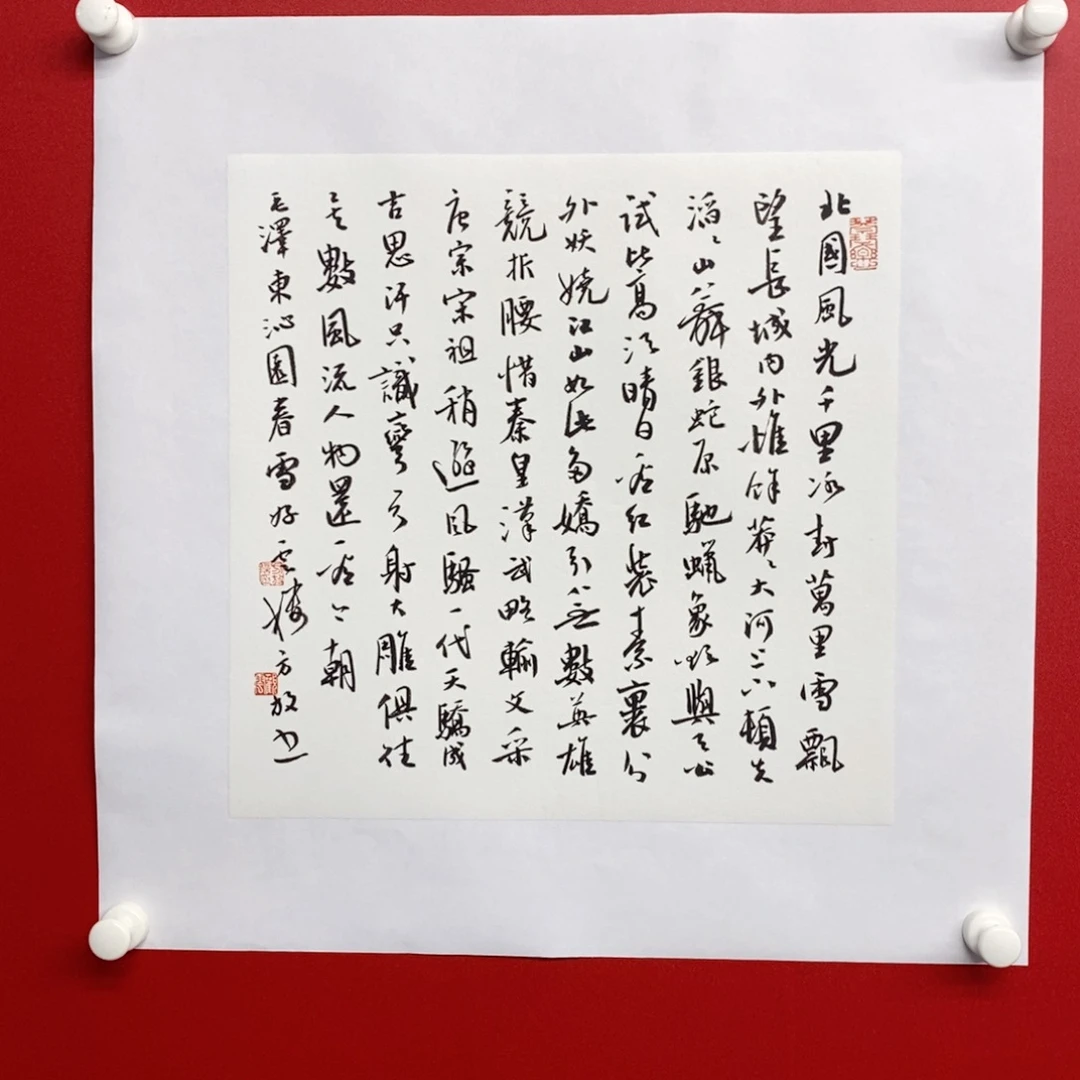 北國風光千里冰封萬里雪飄
望長城内外惟餘莽〻大河上下頓失
滔〻山舞銀蛇原馳蠟象欲與天公
試比高須晴日看紅裝素裹分
外妖嬈江山如此多嬌引無數英雄
競折腰惜秦皇漢武略輸文采
唐宗宋祖稍遜风騷一代天驕成
吉思汗只識彎弓射大雕俱往
矣數風流人物還看今朝
毛澤東沁園春雪